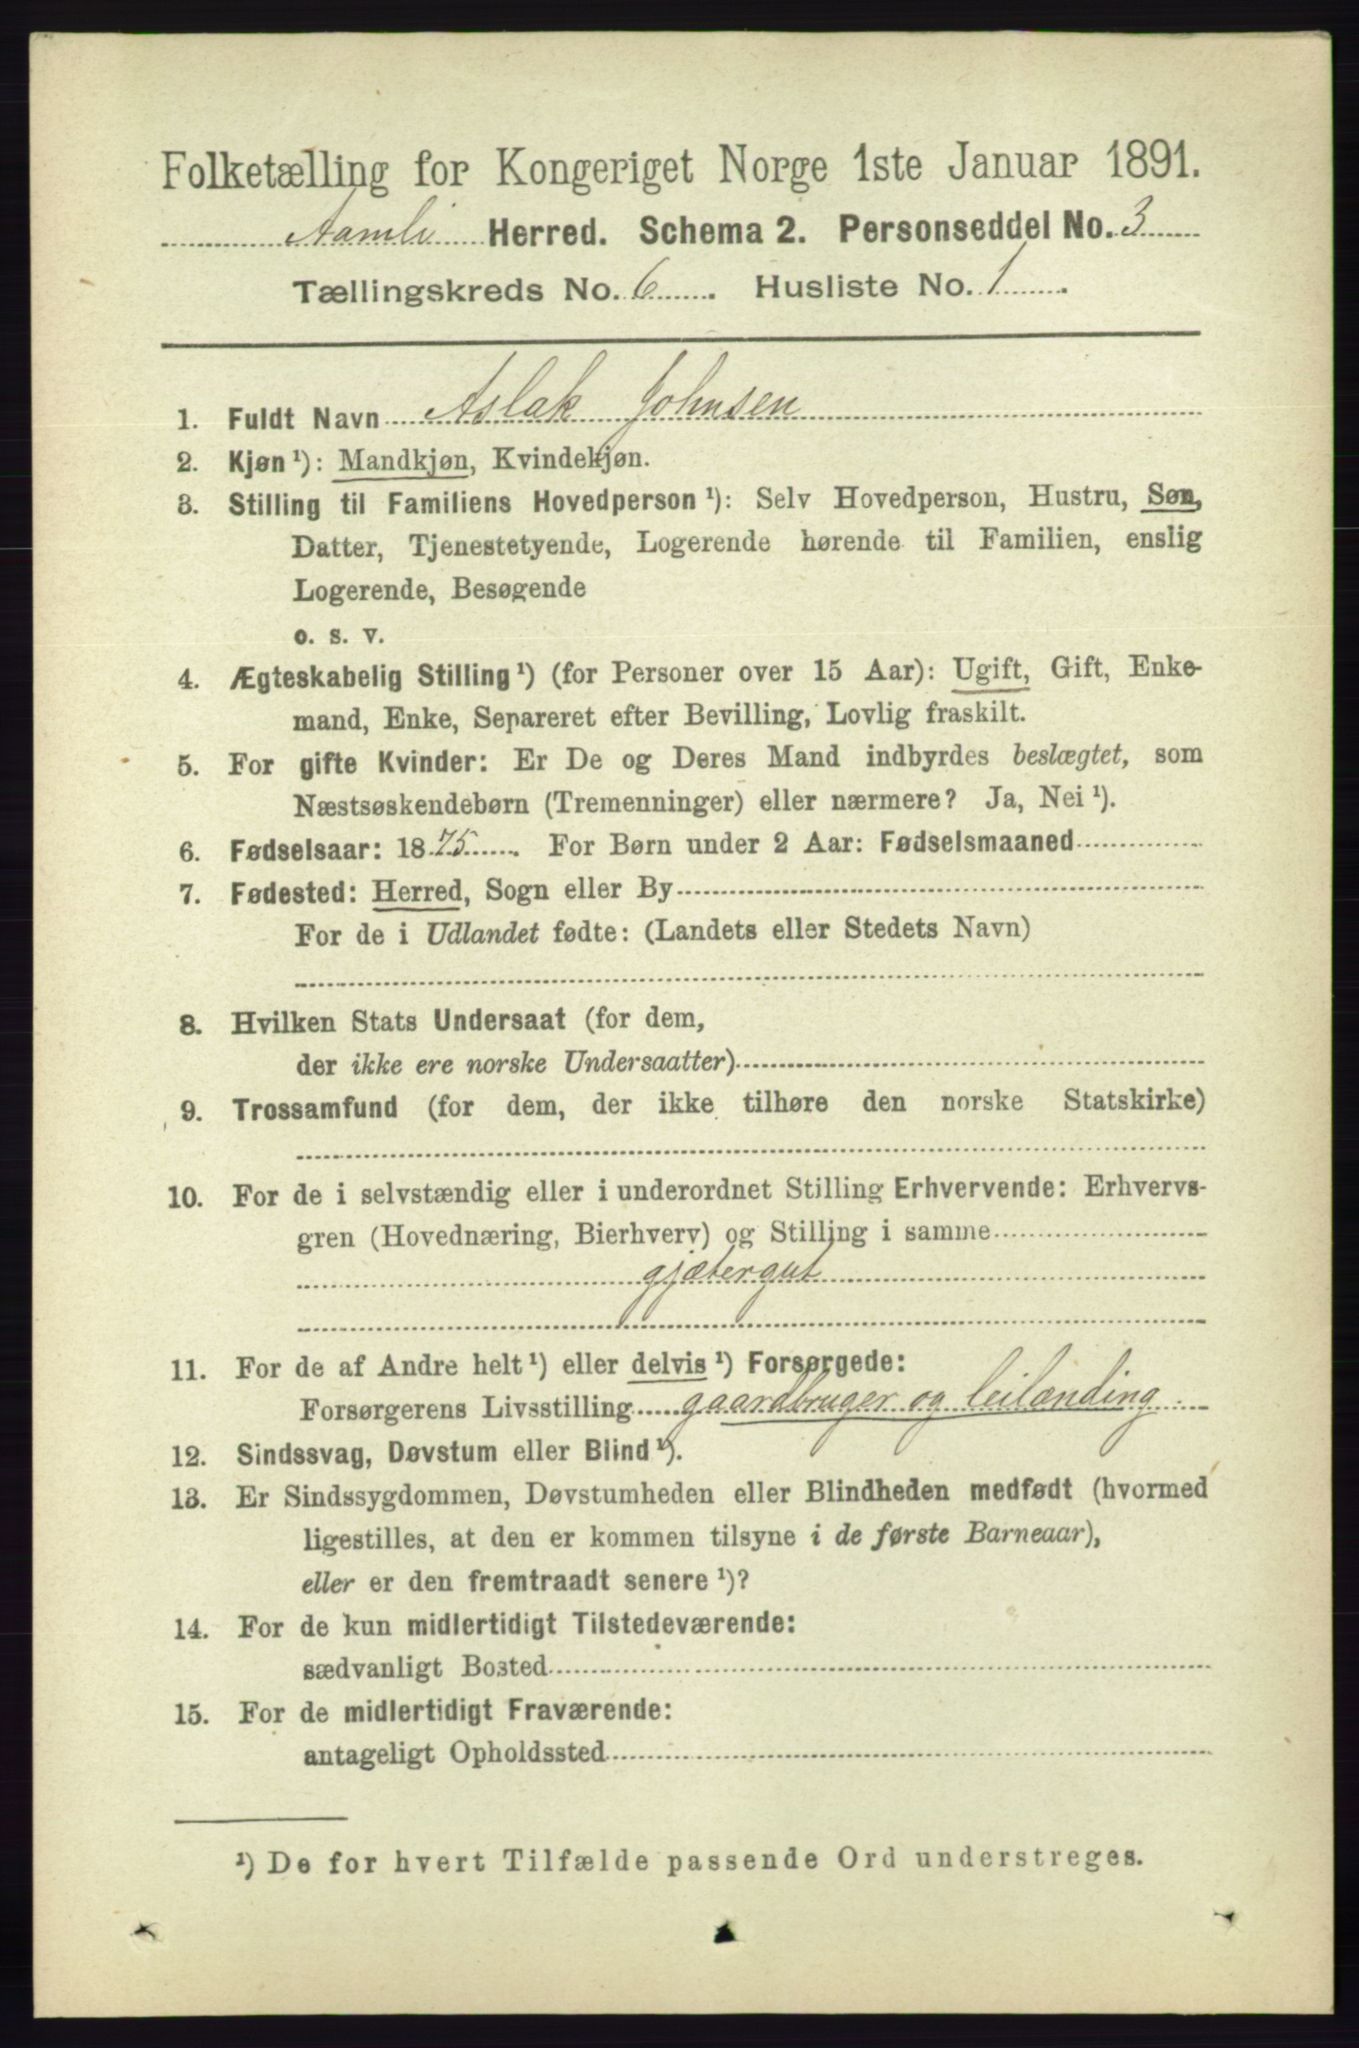 Folketælling for Kongeriget Norge 1ste Januar 1891.
Aamli Herred. Schema 2. Personseddel No. 3
Tællingskreds No. 6. Husliste No. 1.
1. Fuldt Navn Aslak Johnsen
2. Kjøn ¹): Mandkjøn, Kvindekjøn.
3. Stilling til Familiens Hovedperson ¹): Selv Hovedperson, Hustru, Søn,
Datter, Tjenestetyende, Logerende hørende til Familien, enslig
Logerende, Besøgende
o. s. v.
4. Ægteskabelig Stilling ¹) (for Personer over 15 Aar): Ugift, Gift, Enke-
mand, Enke, Separeret efter Bevilling, Lovlig fraskilt.
5. For gifte Kvinder: Er De og Deres Mand indbyrdes beslægtet, som
Næstsøskendebørn (Tremenninger) eller nærmere? Ja, Nei ¹).
6. Fødselsaar: 1875. For Børn under 2 Aar: Fødselsmaaned
7. Fødested: Herred, Sogn eller By
For de i Udlandet fødte: (Landets eller Stedets Navn)
8. Hvilken Stats Undersaat (for dem,
der ikke ere norske Undersaatter)
9. Trossamfund (for dem, der ikke tilhøre den norske Statskirke)
10. For de i selvstændig eller i underordnet Stilling Erhvervende: Erhvervs-
gren (Hovednæring, Bierhverv) og Stilling i samme
gjætergut
11. For de af Andre helt ¹) eller delvis ¹) Forsørgede:
Forsørgerens Livsstilling gaardbruger og leilænding
12. Sindssvag, Døvstum eller Blind ¹).
13. Er Sindssygdommen, Døvstumheden eller Blindheden medfødt (hvormed
ligestilles, at den er kommen tilsyne i de første Barneaar),
eller er den fremtraadt senere ¹)?
14. For de kun midlertidigt Tilstedeværende:
sædvanligt Bosted
15. For de midlertidigt Fraværende:
antageligt Opholdssted
¹) De for hvert Tilfælde passende Ord understreges.